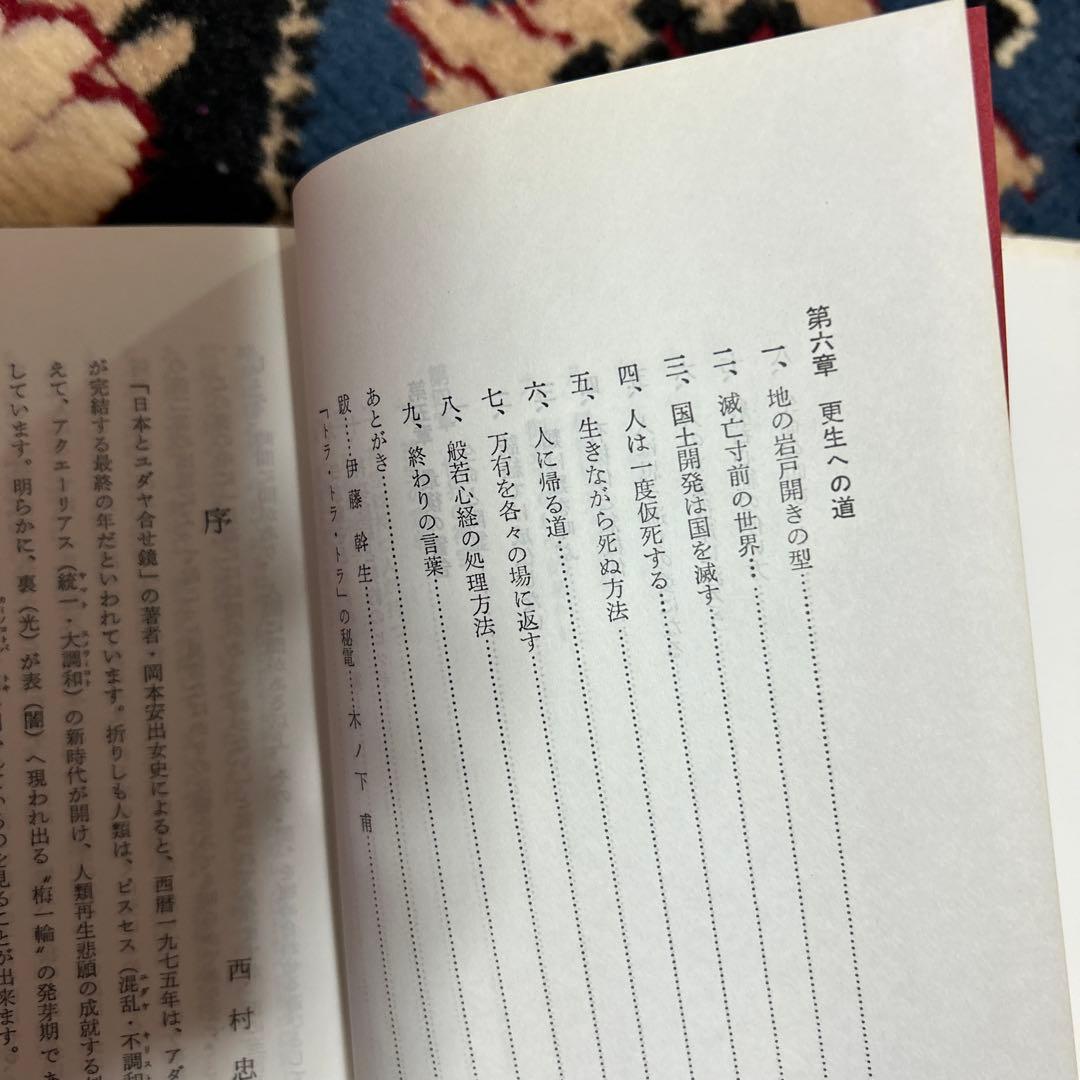 第六章　更生への道
一、地の岩戸開きの型…………
二、滅亡寸前の世界…………
三、国土開発は国を滅す…………
四、人は一度仮死する…………
五、生きながら死ぬ方法…………
六、人に帰る道…………
七、万有を各々の場に返す…………
八、般若心経の処理方法…………
九、終わりの言葉…………
あとがき…………
跋……伊藤幹生…………
「トラ・トラ・トラ」の秘電……木ノ下甫…………
序
西村忠
「日本とユダヤ合せ鏡」の著者・岡本安出女史によると、西暦一九七五年は、アダ
が完結する最終の年だといわれています。折りしも人類は、ピスセス（混乱・不調和
えて、アクェーリアス（統一・大調和）の新時代が開け、人類再生悲願の成就する
しています。明らかに、裏（光）が表（闇）へ現われ出る〝梅一輪〟の発芽期であ
のを見ることが出来ます。